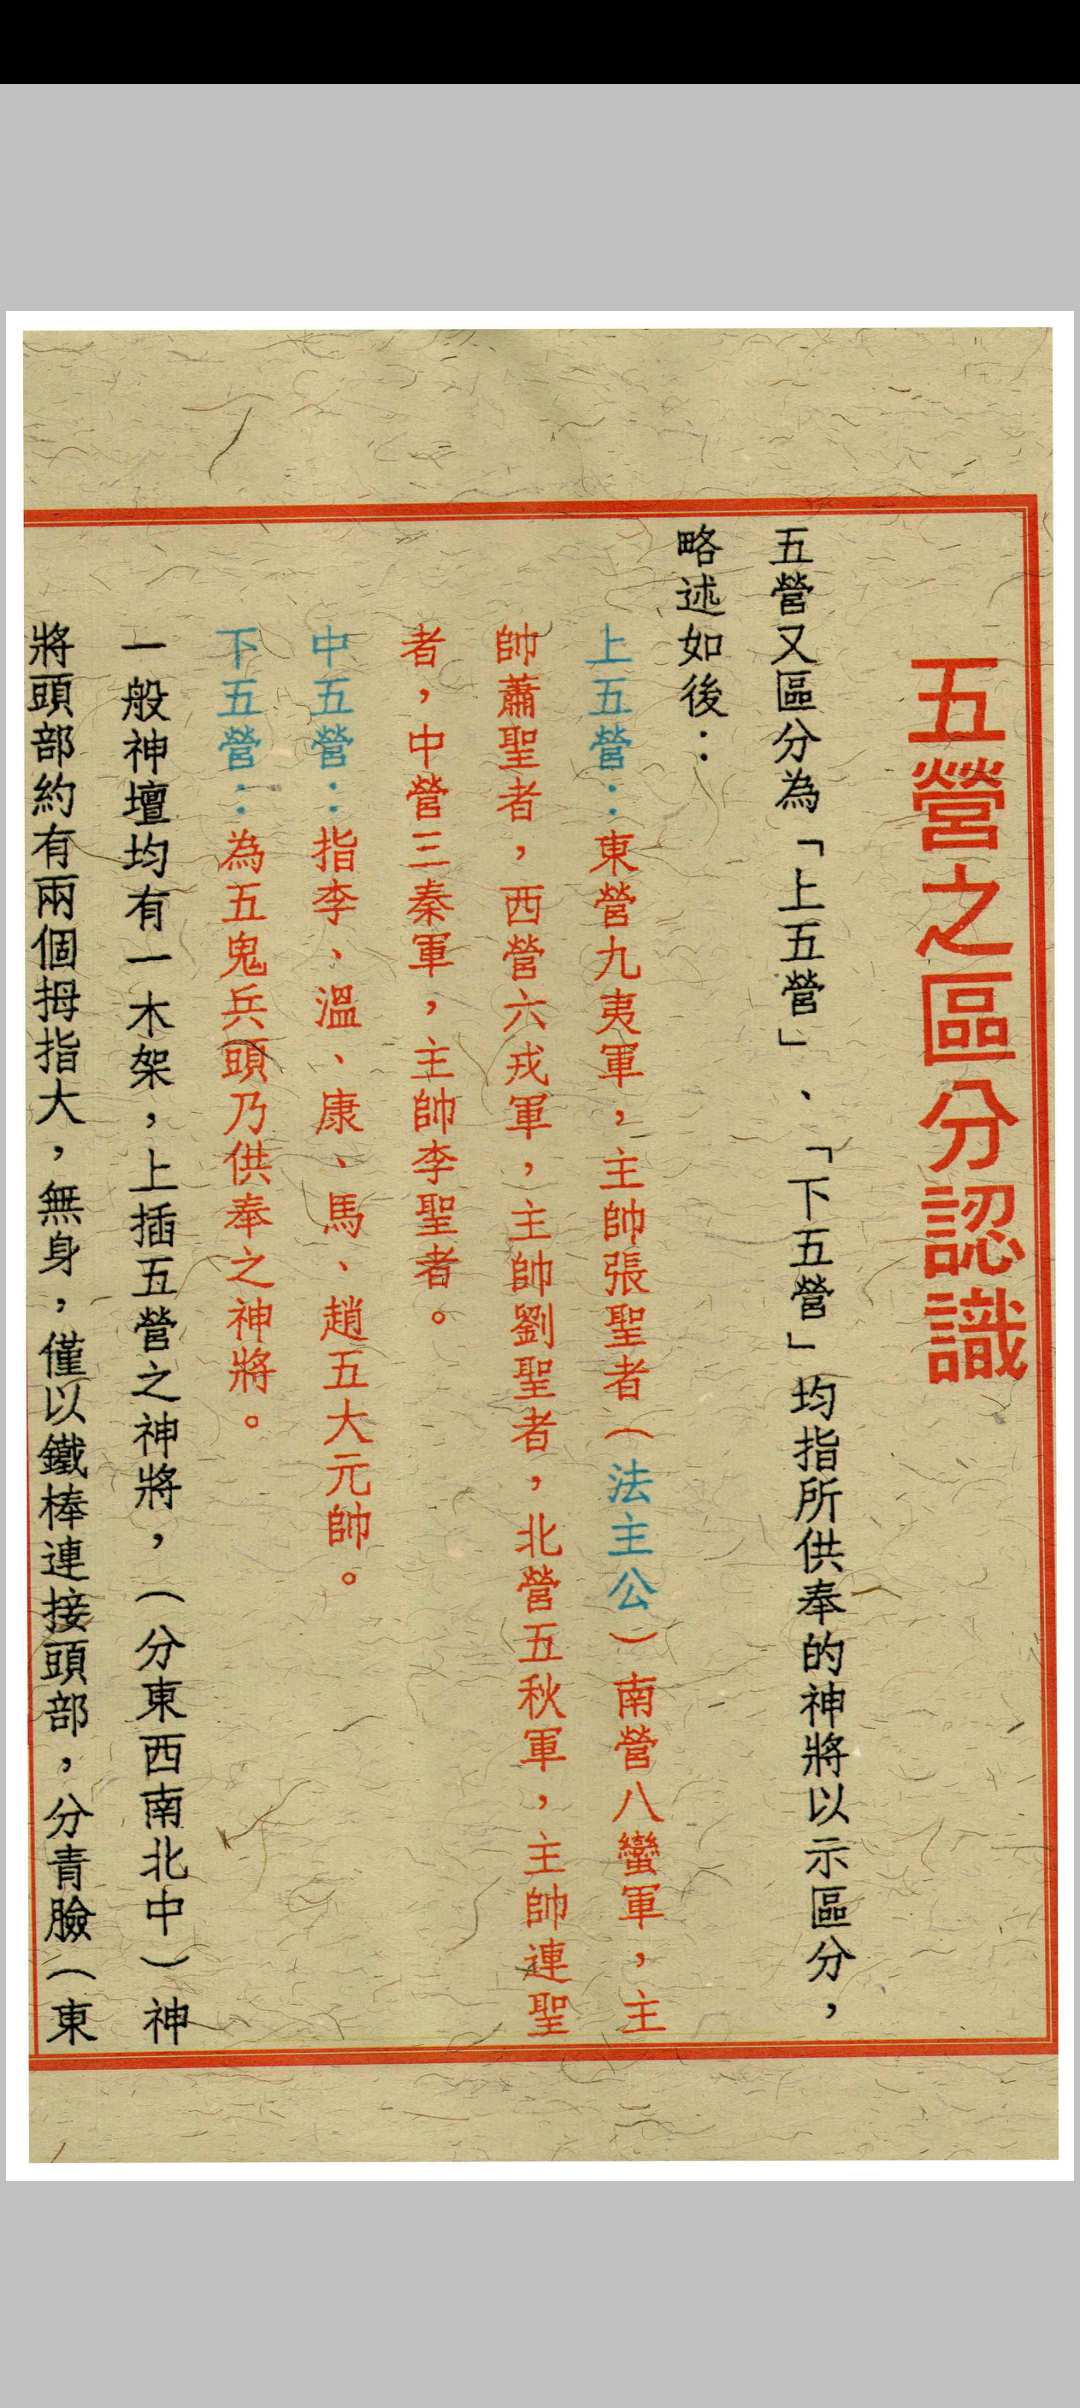 五營之區分認識
五營又區分為「上五營」、「下五營」均指所供奉的神將以示區分，
略述如後：
上五營：東營九夷軍，主帥張聖者（法主公）南營八蠻軍，主
帥蕭聖者，西營六戎軍，主帥劉聖者，北營五秋軍，主帥連聖
者，中營三秦軍，主帥李聖者。
中五營：指李、溫、康、馬、趙五大元帥。
下五營：為五鬼兵頭乃供奉之神將。
一般神壇均有一木架，上插五營之神將，（分東西南北中）神
將頭部約有兩個拇指大，無身，僅以鐵棒連接頭部，分青臉（東